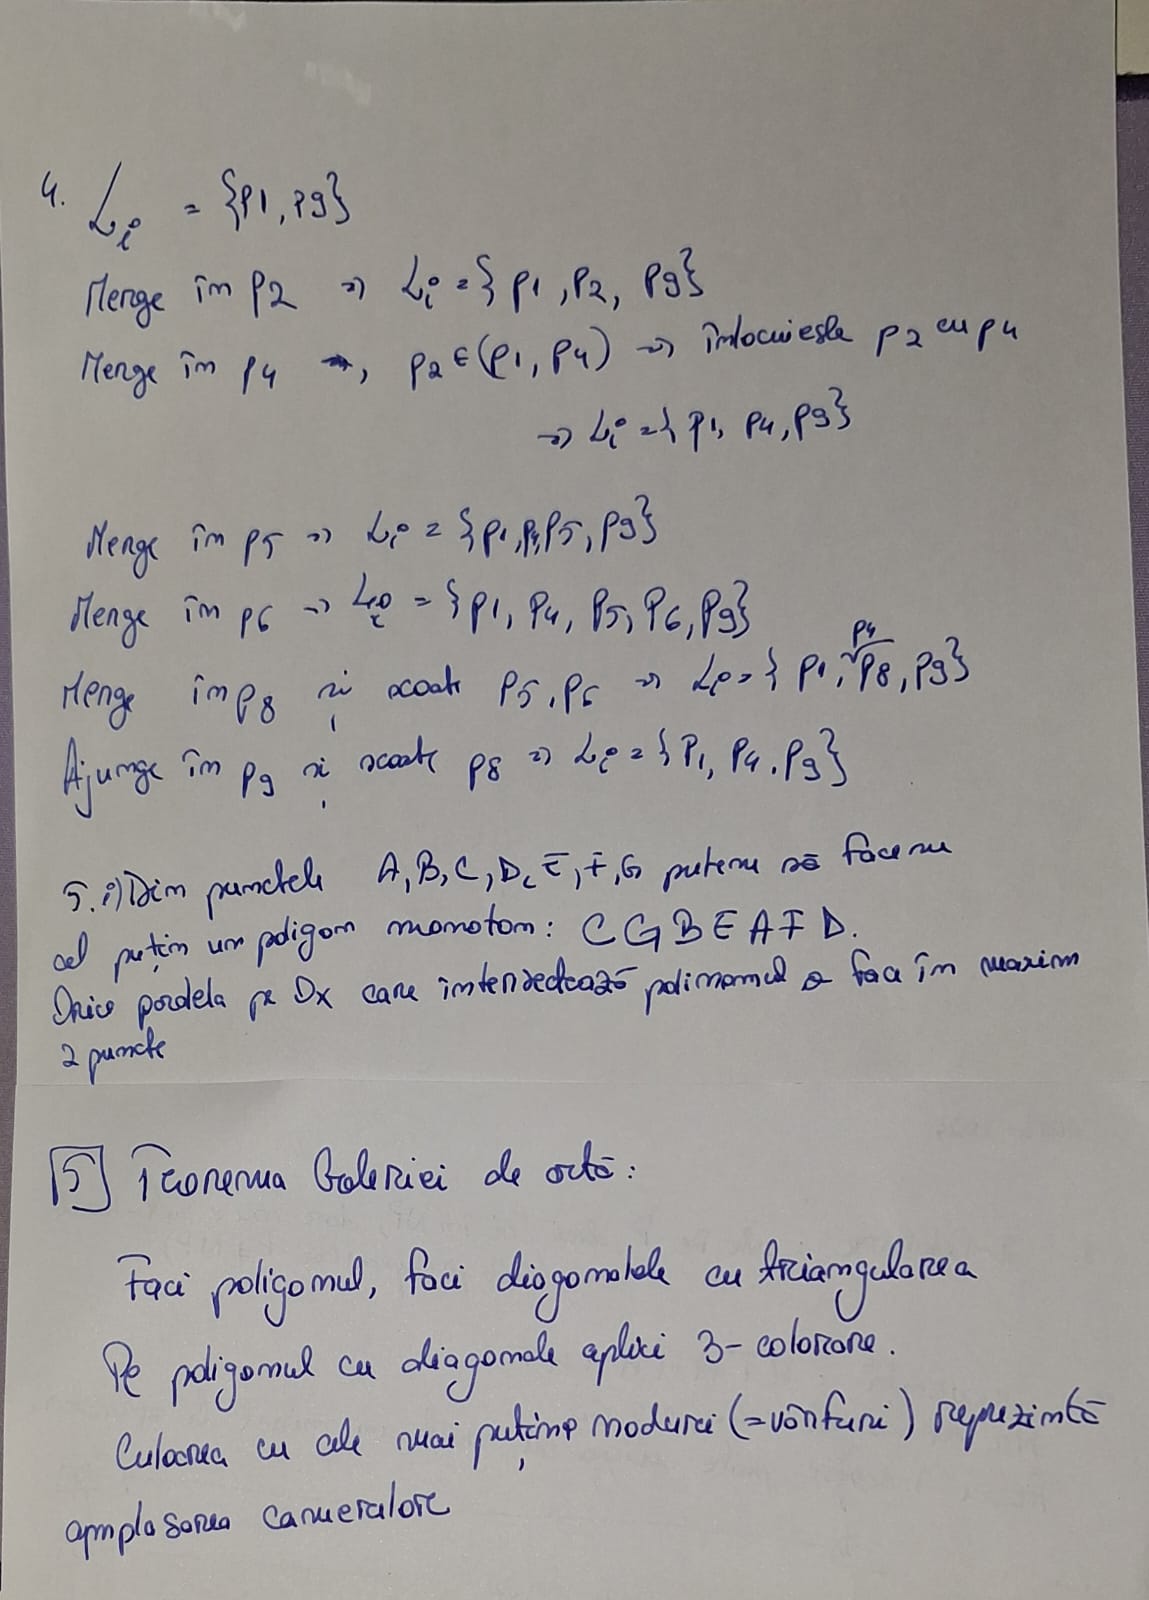 4. Li = {p1, p9}
Merge în p2 => Li = {p1, p2, p9}
Merge în p4, p2 ∈ (p1, p4) => înlocuiește p2 cu p4
=> Li = {p1, p4, p9}
Merge în p5 => Li = {p1, p4, p5, p9}
Merge în p6 => Li = {p1, p4, p5, p6, p9}
Merge în p8 și scoate p5, p6 => Li = {p1, p4, p8, p9}
Ajunge în p9 și scoate p8 => Li = {p1, p4, p9}
5. i) Din punctele A, B, C, D, E, F, G putem să facem
cel puțin un poligon monoton: C G B E A F D.
Orice pe Ox care intersectează o face în maxim
2 puncte
5 Teorema Galeriei de artă:
Faci poligonul, faci diagonalele cu triangularea
Pe poligonul cu diagonale aplici 3-colorare.
Culoarea cu cele mai puține noduri (=vârfuri) reprezintă
amplasarea camerelor